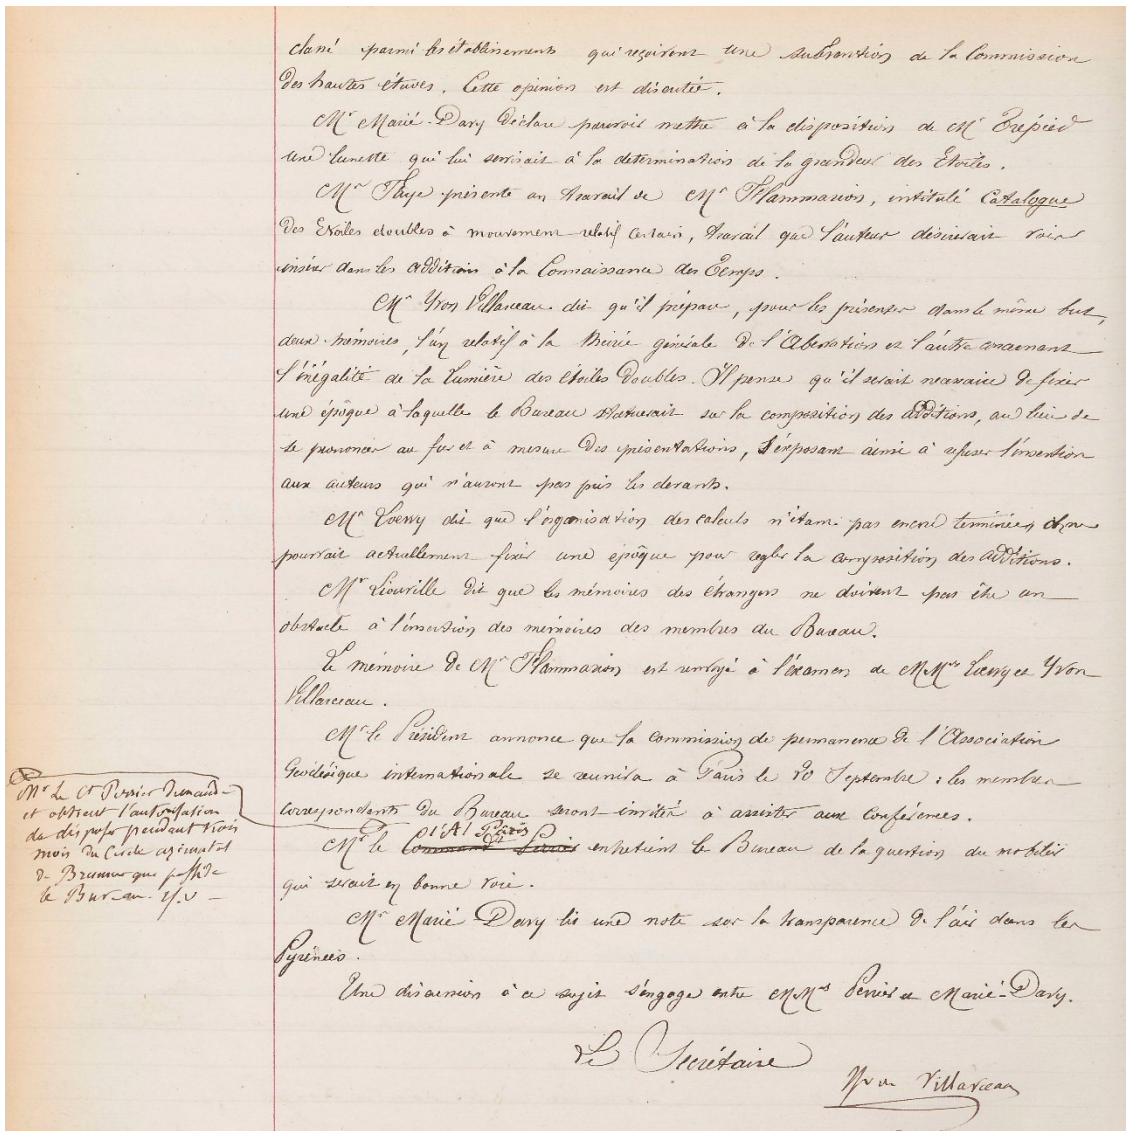 classé parmi les établissements qui reçoivent une subvention de la Commission
des hautes études. Cette opinion est discutée.
Mr Marié-Davy déclare pouvoir mettre à la disposition de Mr Trépied
une lunette qui lui servirait à la détermination de la grandeur des Etoiles.
Mr Faye présente un travail de Mr Flammarion, intitulé Catalogue
des Etoiles doubles à mouvement relatif certain, travail que l'auteur désirerait voir
insérer dans les additions à la Connaissance des Temps.
Mr Yvon Villarceau dit qu'il prépare, pour les présenter dans le même but,
deux mémoires, l'un relatif à la théorie générale de l'Aberration et l'autre concernant
l'inégalité de la lumière des étoiles doubles. Il pense qu'il serait nécessaire de fixer
une époque à laquelle le Bureau statuerait sur la composition des additions, au lieu de
se prononcer au fur et à mesure des présentations, s'exposant ainsi à refuser l'insertion
aux auteurs qui n'auront pas pris les devants.
Mr Loewy dit que l'organisation des calculs n'étant pas encore terminée, on ne
pourrait actuellement fixer une époque pour regler la composition des additions.
Mr Liouville dit que les mémoires des étrangers ne doivent pas être un
obstacle à l'insertion des mémoires des membres du Bureau.
Le mémoire de Mr Flammarion est renvoyé à l'examen de MMrs Loewy et Yvon
Villarceau.
Mr le Président annonce que la commission de permanence de l'Association
Géodésique internationale se réunira à Paris le 20 Septembre : les membres
correspondants du Bureau seront invités à assister aux conférences.
Mr Le Ct Perrier demande
et obtient l'autorisation
de disposer pendant trois
mois du Cercle azimutal
de Brunner que possède
le Bureau. Y.V
Mr le Commandt Perrier entretient le Bureau de la question du mobilier
qui serait en bonne voie.
Mr Marié Davy lit une note sur la transparence de l'air dans les
Pyrénées.
Une discussion à ce sujet s'engage entre MMrs Perrier et Marié-Davy.
Le Secrétaire
Yvon Villarceau